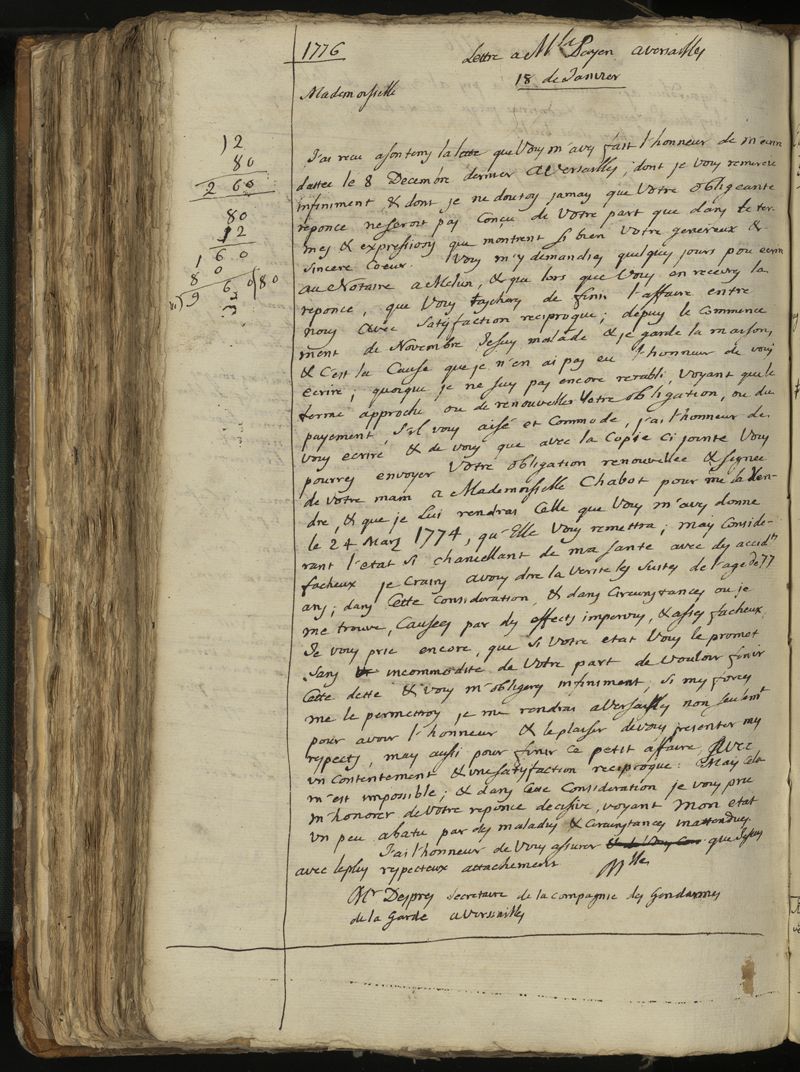 1776
Lettre a Mlle Payen a Versailles
18 de Janvier
Mademoiselle
12
80
260
80
12
160
80
960
J'ai recu a son tems la lettre que Vous m'aves fait l'honneur de m'ecrire
dattee le 8 Decembre dernier a Versailles, dont je Vous remercie
infiniment & dont je ne doutois jamais que Votre obligeante
reponce ne seroit pas Conçue de Votre part que dans le ter-
mes & expressions que montrent si bien Votre genereux &
Sincere Coeur. Vous m'y demandies quelques jours pou ecrire
au Notaire a Melun, & que lors que Vous en receves la
reponce, que Vous tacheres de finir l'affaire entre
nous avec Satisfaction reciproque; depuis le Commence
ment de Novembre Je suis malade & je garde la maison,
& C'est la Cause que je n'en ai pas eu l'honneur de vous
ecrire; quoique je ne suis pas encore retabli, Voyant que le
terme approche ou de renouveller Votre obligation, ou du
payement, S'il vous aisé et Commode, j'ai l'honneur de
Vous ecrire & de vous que avec la Copie Ci jointe Vous
pourres envoyer Votre obligation renouvellée & signée
de Votre main a Mademoiselle Chabot pour me la Ren-
dre, & que je Lui rendrai Celle que Vous m'aves donne
le 24 Mars 1774, qu'Elle Vous remettra; mais Conside-
rant l'etat si chancellant de ma sante avec des accidts
facheux je Crains avous dire la Verite les suites de l'age de 77
ans; dans Cette Consideration, & dans Circunstances ou je
me trouve, Causees par des effects imprevus, & asses facheux,
Je vous prie encore, que si Votre etat Vous le promet
Sans incommodite de Votre part de Vouloir finir
Cette dette & vous m'obligeres infiniment, si mes forces
me le permettroy je me rendrai a Versailles non seulemt
pour avoir l'honneur & le plaisir de vous presenter mes
respects, mais aussi pour finir ce petit affaire Avec
un Contentement & une satisfaction reciproque: Mais Cela
m'est impossible; & dans Cette Consideration je vous prie
m'honorer de Votre reponce decisive, voyant mon etat
un peu abatu par des maladies & Circunstances inattendues.
J'ai l'honneur de Vous assurer que Je suis
avec le plus respecteux attachement Mlle
Mr Despres Secretaire de la Compagnie des Gendarmes
de la Garde a Versailles